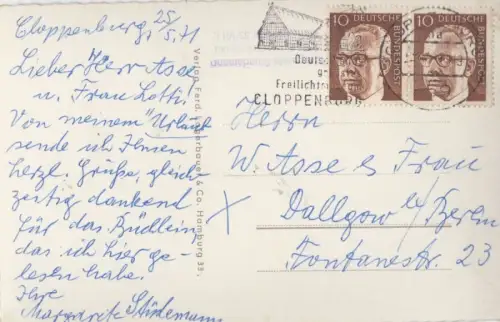 Cloppenburg, 25/5.71
Lieber Herr Asse
u. Frau Lotti.
Von meinem "Urlaub
sende ich Ihnen
herzl. Grüße, gleich-
zeitig dankend
für das Büchlein,
das ich hier ge-
lesen habe.
Ihre
Margarete
Verlag Ferd. & Co., Hamburg 33,
10 DEUTSCHE BUNDESPOST
10 DEUTSCHE BUNDESPOST
Freilicht
CLOPPENBURG
Herrn
W. Asse & Frau
Dallgow b/ Berlin
Fontanestr. 23